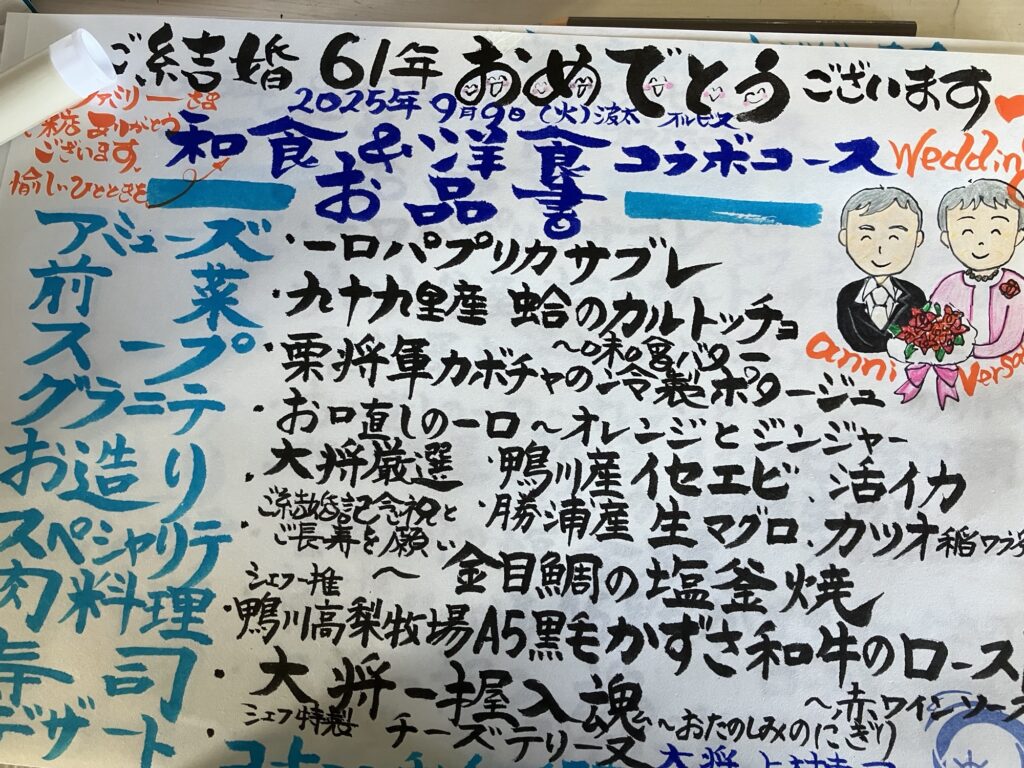 ご結婚 61年 おめでとうございます
2025年 9月9日(火)涼太
ファミリーさま
ご来店 ありがとう
ございます。
愉しいひとときを
和食&洋食 コラボコース
お品書
Wedding
anni versa
アミューズ ・一口パプリカサブレ
前菜 ・九十九里産 蛤のカルトッチョ
スープ ・栗将軍カボチャの冷製ポタージュ
グラニテ ・お口直しの一口~オレンジとジンジャー
お造り ・大将厳選 ・鴨川産イセエビ、活イカ
・勝浦産 生マグロ、カツオ稲ワラ
スペシャリテ ・ご結婚記念祝と
ご長寿を願い~ 金目鯛の塩釜焼
肉料理 シェフ推
・鴨川高梨牧場A5黒毛かずさ和牛のロース
~赤ワインソース
寿司 ・大将一握入魂
~おたのしみのにぎり
デザート シェフ特製 チーズテリーヌ